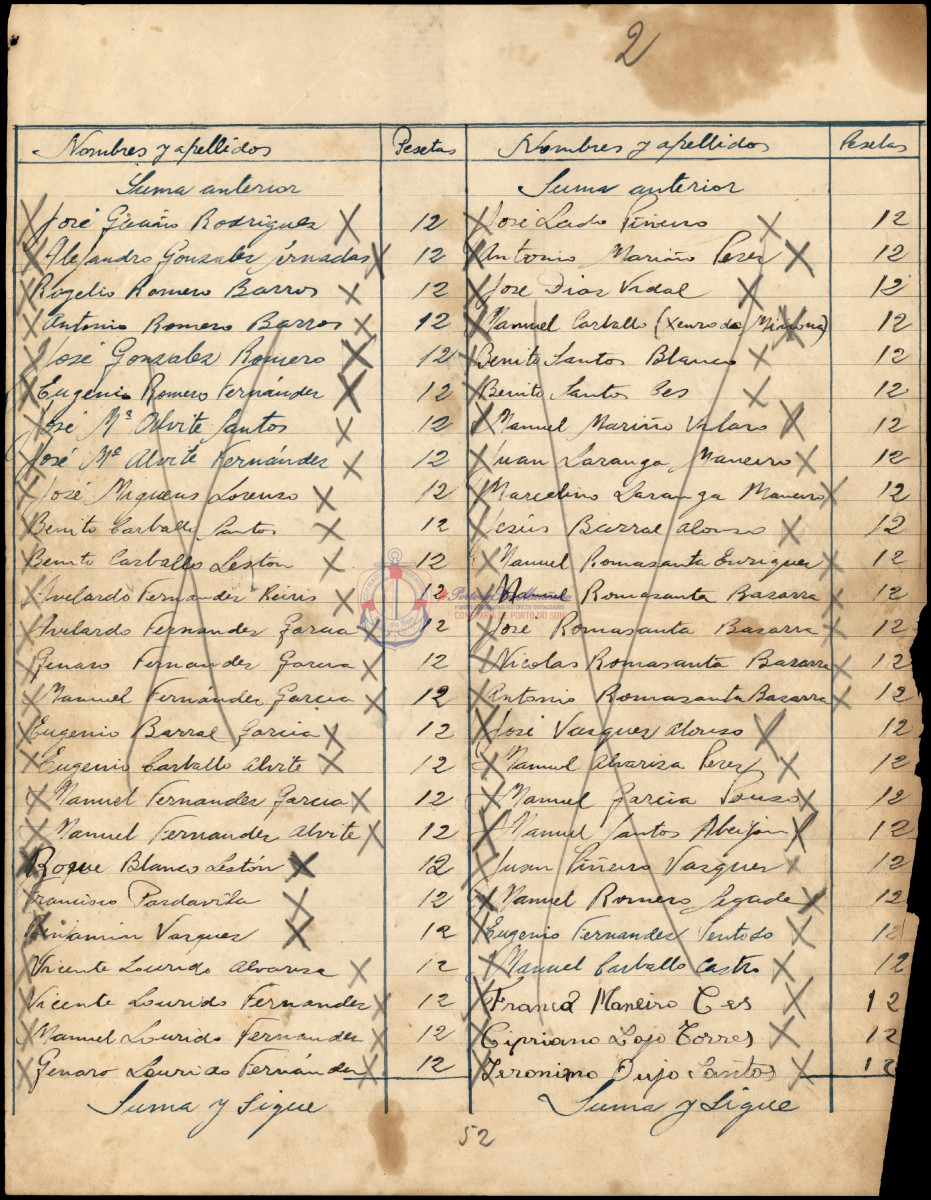 2
Nombres y apellidos Pesetas
Suma anterior
José Rodriguez 12
Alejandro Gonzales 12
Rogelio Romero Barros 12
Antonio Romero Barros 12
José Gonzales Romero 12
Eugenio Romero Fernández 12
José Mª Alvite Santos 12
José Mª Alvite Fernández 12
José Migueus Lorenzo 12
Benito Carballo Santos 12
Benito Carballo Lestón 12
Avelardo Fernandez 12
Avelardo Fernandez Garcia 12
Genaro Fernandez Garcia 12
Manuel Fernández Garcia 12
Eugenio Barral Garcia 12
Eugenio Carballo Alvite 12
Manuel Fernandez Garcia 12
Manuel Fernandez Alvite 12
Roque Blanco Lestón 12
Francisco Pardavila 12
Benjamin Vasques 12
Vicente Lourido Alvarisa 12
Vicente Lourido Fernandez 12
Manuel Lourido Fernandez 12
Genaro Lourido Fernández 12
Suma y Sigue
Nombres y apellidos Pesetas
Suma anterior
José Lado Piñeiro 12
Antonio Mariño Peréz 12
Jose Dias Vidal 12
Manuel Carballo 12
Benito Santos Blanco 12
Benito Santos Ces 12
Manuel Mariño 12
Juan Laranga Maneiro 12
Marcelino Laranga Maneiro 12
Jesús Barral Alonso 12
Manuel Romasanta Enriquez 12
Manuel Romasanta Bazarra 12
José Romasanta Bazarra 12
Nicolas Romasanta Bazarra 12
Antonio Romasanta Bazarra 12
José Vasques Alonso 12
Manuel Alvariza Perez 12
Manuel Garcia Pouso 12
Manuel Santos Abeijón 12
Juan Piñeiro Vasques 12
Manuel Romero Segade 12
Eugenio Fernandez Ventoso 12
Manuel Carballo Castro 12
Francº Maneiro Ces 12
Cipriano Lojo Torres 12
Jeronimo Oujo Santos 12
Suma y Sigue
52
COFRARÍA DE PORTO DO SON